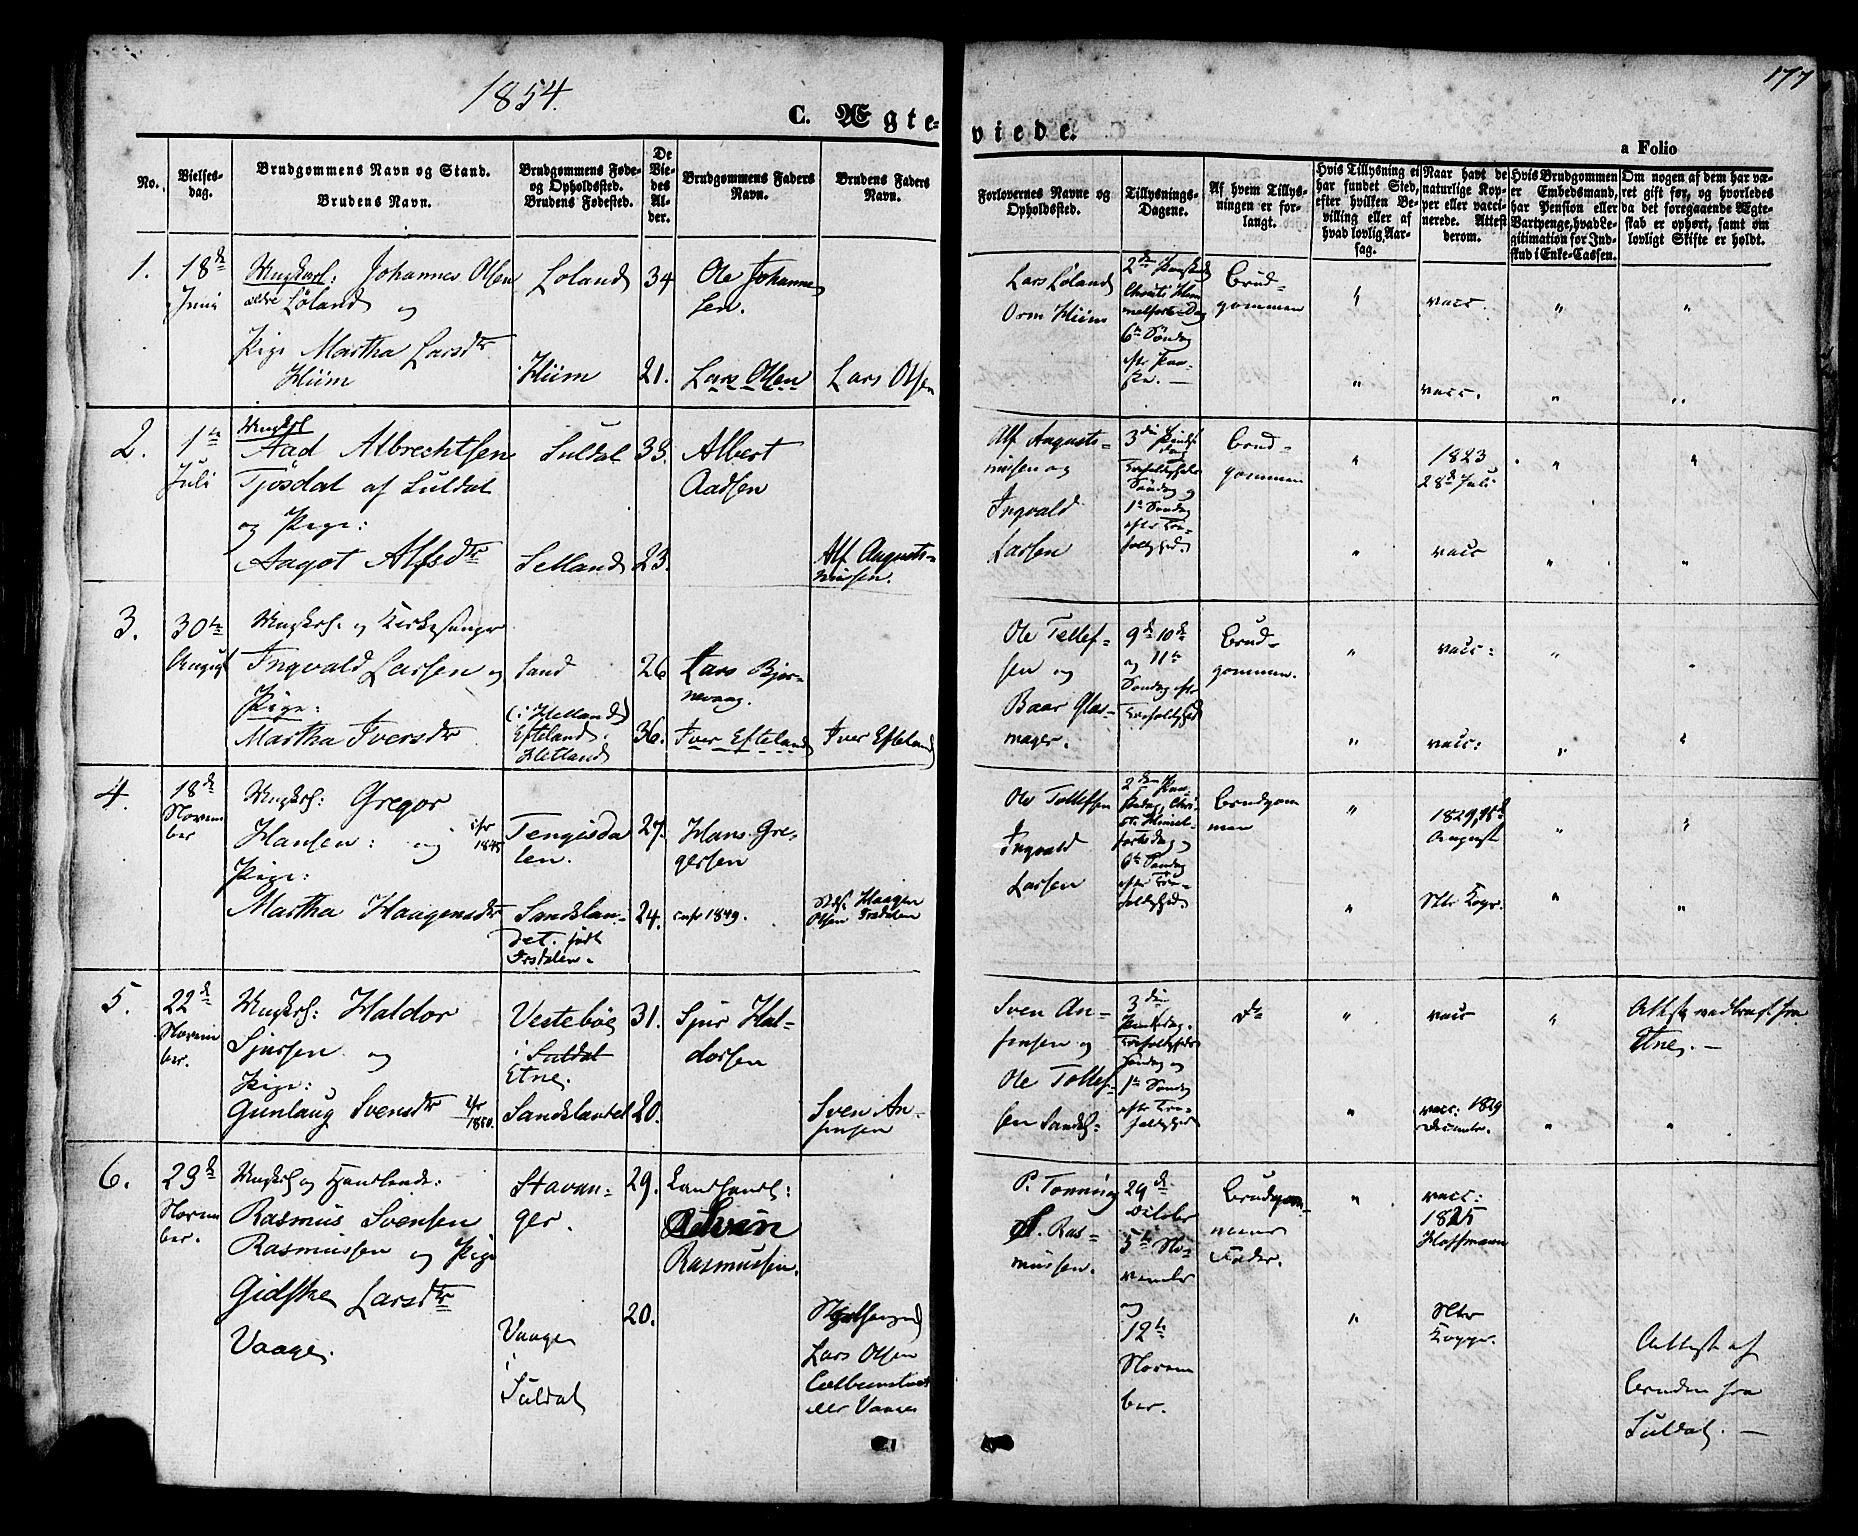 1854.
177
C. Ægte-
viede.
a Folio
No.
Vielses-
dag.
Brudgommens Navn og Stand.
Brudens Navn.
Brudgommens Føde-
og Opholdssted.
Brudens Fødested.
De
Vie-
des
Al-
der.
Brudgommens Faders
Navn.
Brudens Faders
Navn.
Forlovernes Navne og
Opholdssted.
Tillysnings-
Dagene.
Af hvem Tillys-
ningen er for-
langt.
Hvis Tillysning ei
har fundet Sted,
efter hvilken Be-
villing eller af
hvad lovlig Aar-
sag.
Naar havt de
naturlige Kop-
per eller vacci-
nerede. Attest
derom.
Hvis Brudgommen
er Embedsmand,
har Pension eller
Vartpenge, hvad Le-
gitimation for Ind-
skud i Enke-Cassen.
Om nogen af dem har væ-
ret gift før, og hvorledes
da det foregaaende Ægte-
skab er ophørt, samt om
lovligt Skifte er holdt.
1.
18de
Juni
Ungkarl: Johannes Olsen
Løland og
Pige Martha Larsdtr
Hiim
Løland
Hiim
34
21.
Ole Johanne
sen.
Lars Olsen
Lars Olsen
Lars Løland
Orm Hiim
2den Paaskedag
Christi Him
melfarts Dag
6te Søndag
eftr Paa-
ske. —
Brud-
gommen
"
"
vacc.
vacc.
"
"
"
"
2.
1te
Juli
Ungkrl
Aad Albrechtsen
Tjøsdal af Suldal
og Pige:
Aagot Alfsdtr
Suldal
Selland
33.
23.
Albert
Aadsen
Alf Augusti-
nusen.
Alf Augusti-
nusen og
Ingvald
Larsen
3die Pintse
dag
Trefoldigheds
Søndag og
1te Søndag
eftr Tre-
foldighed
Brud-
gommen
"
"
1823
28de Juli
vacc
"
"
"
"
3.
30te
August
Ungkrl. og Kirkesanger
Ingvald Larsen og
Pige:
Martha Iversdtr
Sand
(i Hetland)
Efteland.
Hetland
26
36.
Lars Bjor-
nevaag.
Iver Efteland
Iver Efteland
Ole Tollef-
sen og
Baar Glas-
mager.
9de 10de
og 11te
Søndag eftr
Trefoldighed
Brud-
gommen.
"
"
vacc:
vacc:
"
"
"
"
4.
18de
Novem
ber
Ungkrl: Gregor
Hansen: og
1845
Pige:
Martha Haagensdtr
Tengisda
len.
Sandslan-
det. født
Irsdalen.
27.
24.
Hans Gre-
gersen
conf 1849.
Haagen
Olsen Irsdalen
Ole Tollefsen
Ingvald
Larsen
2den Paa-
skedag, Chri-
sti Himel-
fartsdag og
6te Søndag
eftr Tre-
foldighed
Brudgom
men
"
"
1829,
August
Ntr Kopr.
"
"
"
"
5.
22de
Novem
ber.
Ungkrl: Haldor
Sjursen og
Pige:
Gunlaug Svensdtr
1850.
Vestebøe
i Suldal
Etne.
Sandslandet
31.
20.
Sjur Hal-
dorsen
Sven An-
sensen
Sven An-
sensen og
Ole Tollef-
sen Sandsl:
3die
Pintsedag.
Trefoldigheds
Søndag og
1te Søndag
eftr Tre-
foldighed
Do
"
"
vacc
vacc: 1829
December.
"
"
Attest medbragt fra
Etne. —
"
6.
29de
Novem
ber.
Ungkrl og Handlende:
Rasmus Svensen
Rasmussen og Pige
Gidske Larsdtr
Vaage.
Stavan-
ger.
Vaage
i
Suldal
29.
20.
Landhandl:
Sven
Rasmussen.
Lars Olsen
Colbeinstvet
eller Vaage
P. Tonning
S. Ras-
mussen.
29de
October
5te No-
vember
og
12te
Novem
ber.
Brudgom-
mens
Fader.
"
"
vacc:
1825
Hoffmann
Ntr
Kopper.
Attest af
Bruden fra
Suldal. —